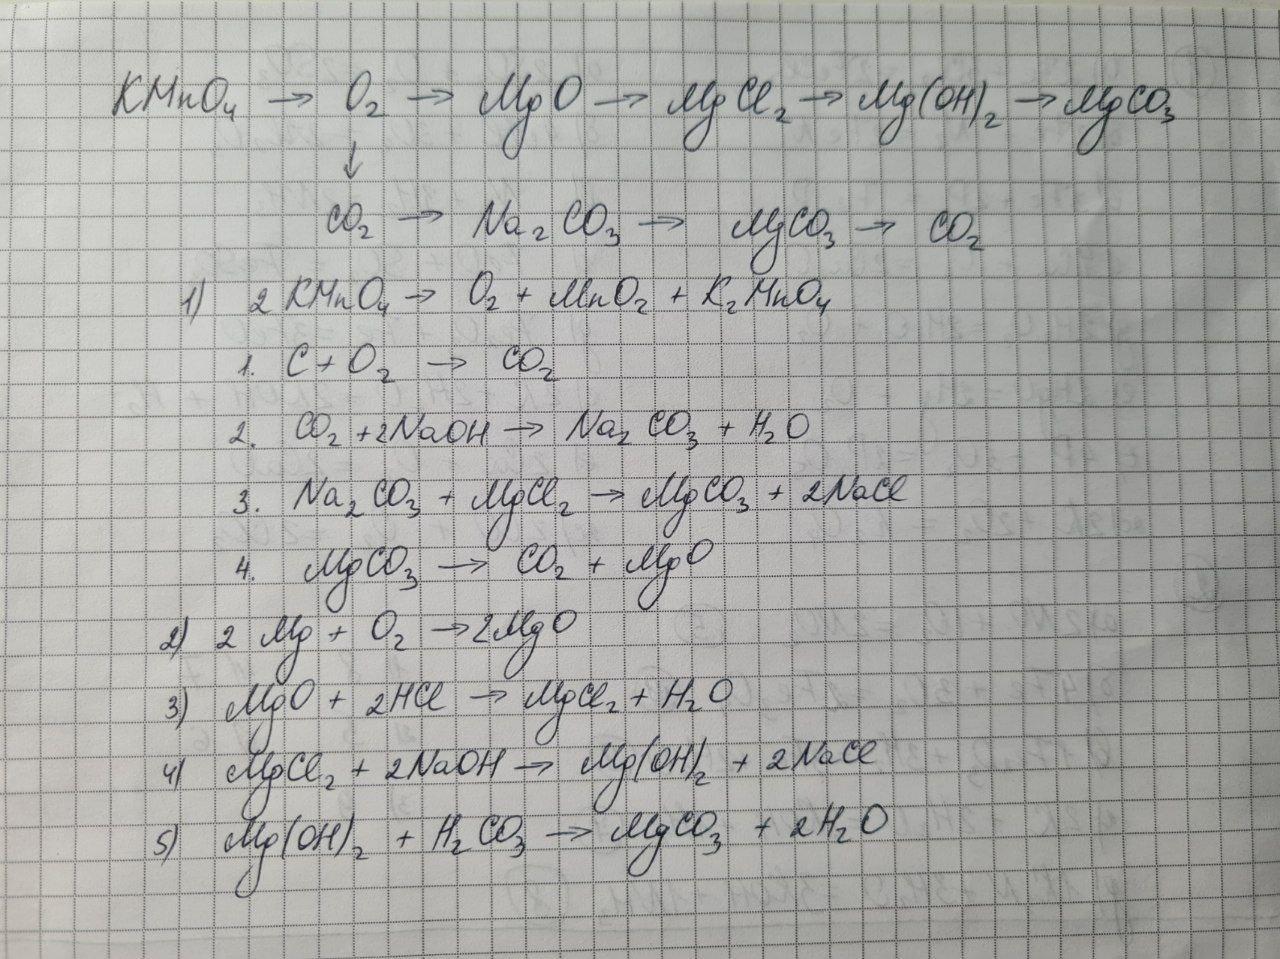 KMnO₄ → O₂ → MgO → MgCl₂ → Mg(OH)₂ → MgCO₃
↓
CO₂ → Na₂CO₃ → MgCO₃ → CO₂
1) 2KMnO₄ → O₂ + MnO₂ + K₂MnO₄
1. C + O₂ → CO₂
2. CO₂ + 2NaOH → Na₂CO₃ + H₂O
3. Na₂CO₃ + MgCl₂ → MgCO₃ + 2NaCl
4. MgCO₃ → CO₂ + MgO
2) 2Mg + O₂ → 2MgO
3) MgO + 2HCl → MgCl₂ + H₂O
4) MgCl₂ + 2NaOH → Mg(OH)₂ + 2NaCl
5) Mg(OH)₂ + H₂CO₃ → MgCO₃ + 2H₂O